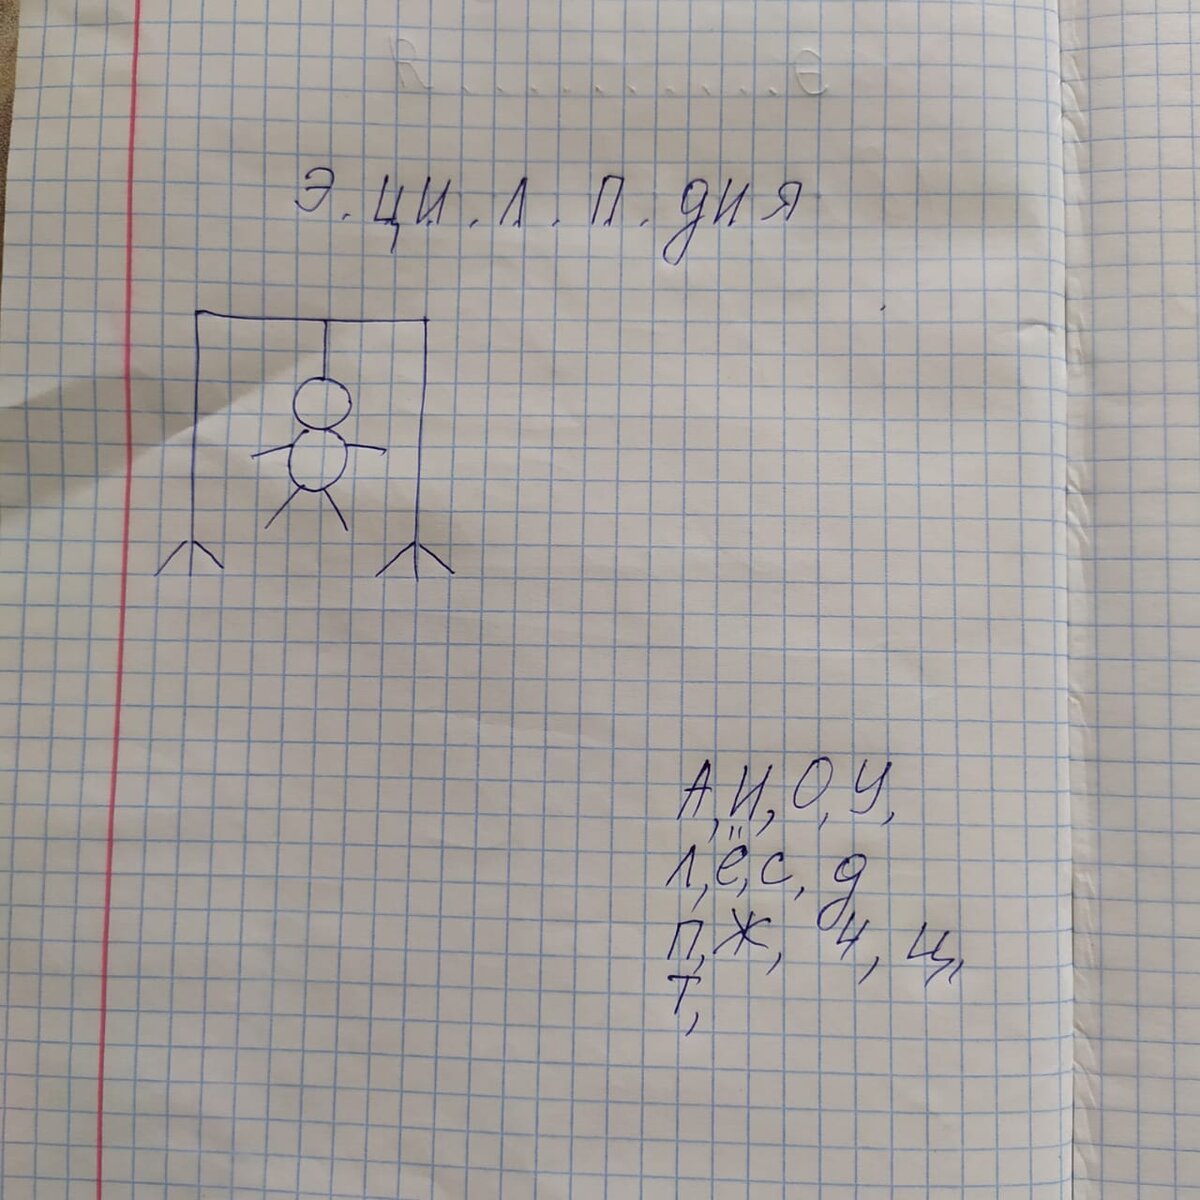 Э.ЦИ.Л.П.ДИЯ
А, И, О, У,
Л, Ё, С, Д
П, Ж, Ч, Ц,
Т,